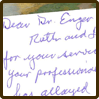 Dear Dr. Enger
Ruth and I
for your service
your professiona
has allowed